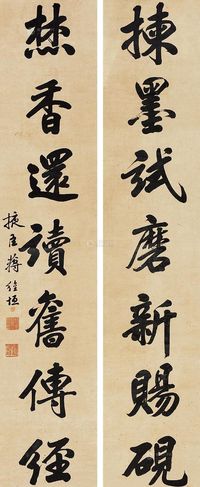 揀墨試磨新賜硯
焚香還讀舊傳經
掖臣蔣維垣